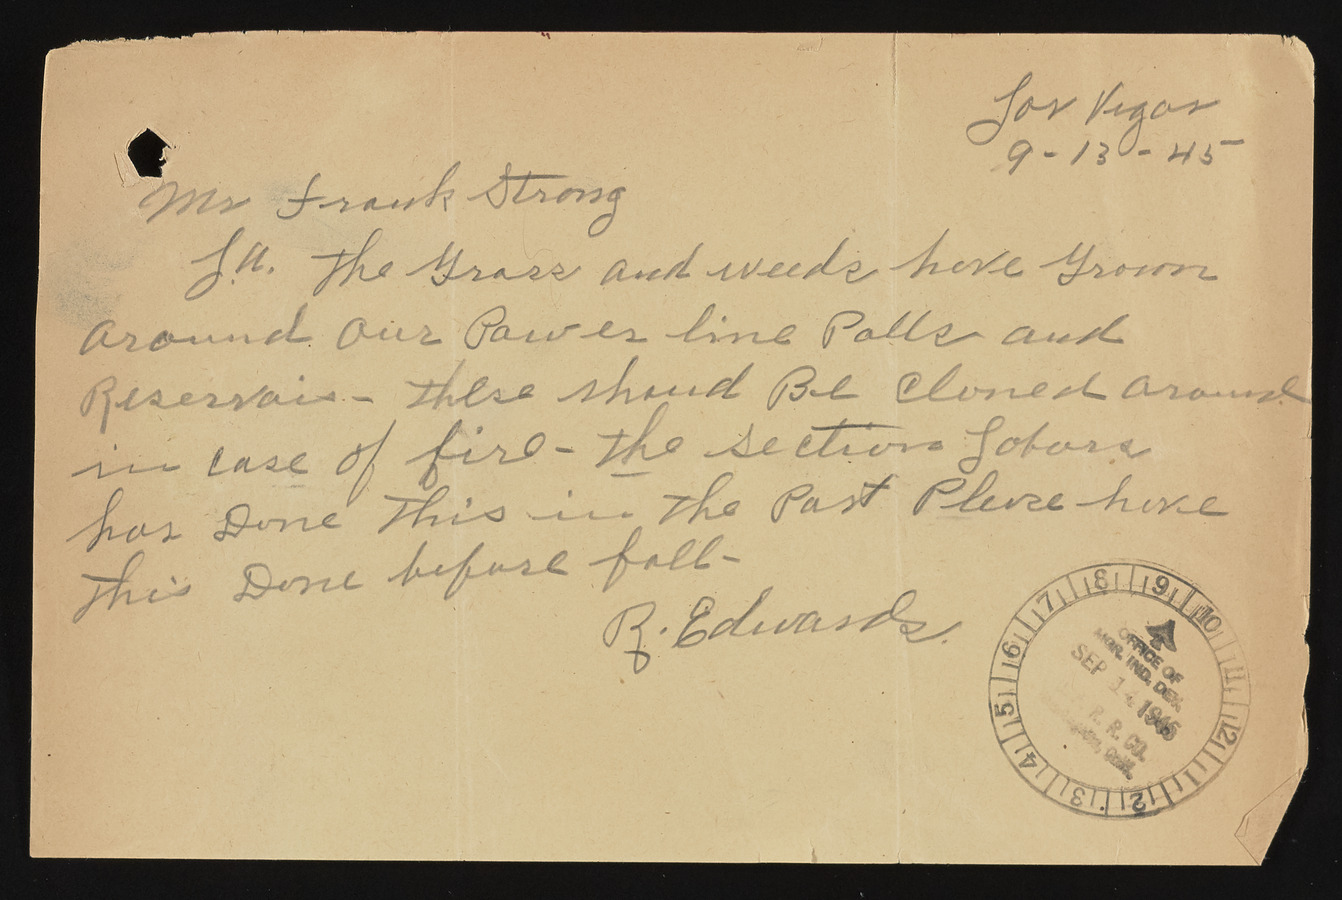 Las Vegas
9-13-45
Mr Frank Strong
L.A. The Grass and weeds have Grown
around our Power line Polls and
Reservair - these shoud Be Cloned around
in case of fire - the section Labors
has Done This in the Past Please have
this Done before fall -
R. Edwards.
7 8 9 10 11 12 1 2 3 4 5 6
OFFICE OF
MGR. IND. DEV.
SEP 14 1945
R. R. CO.